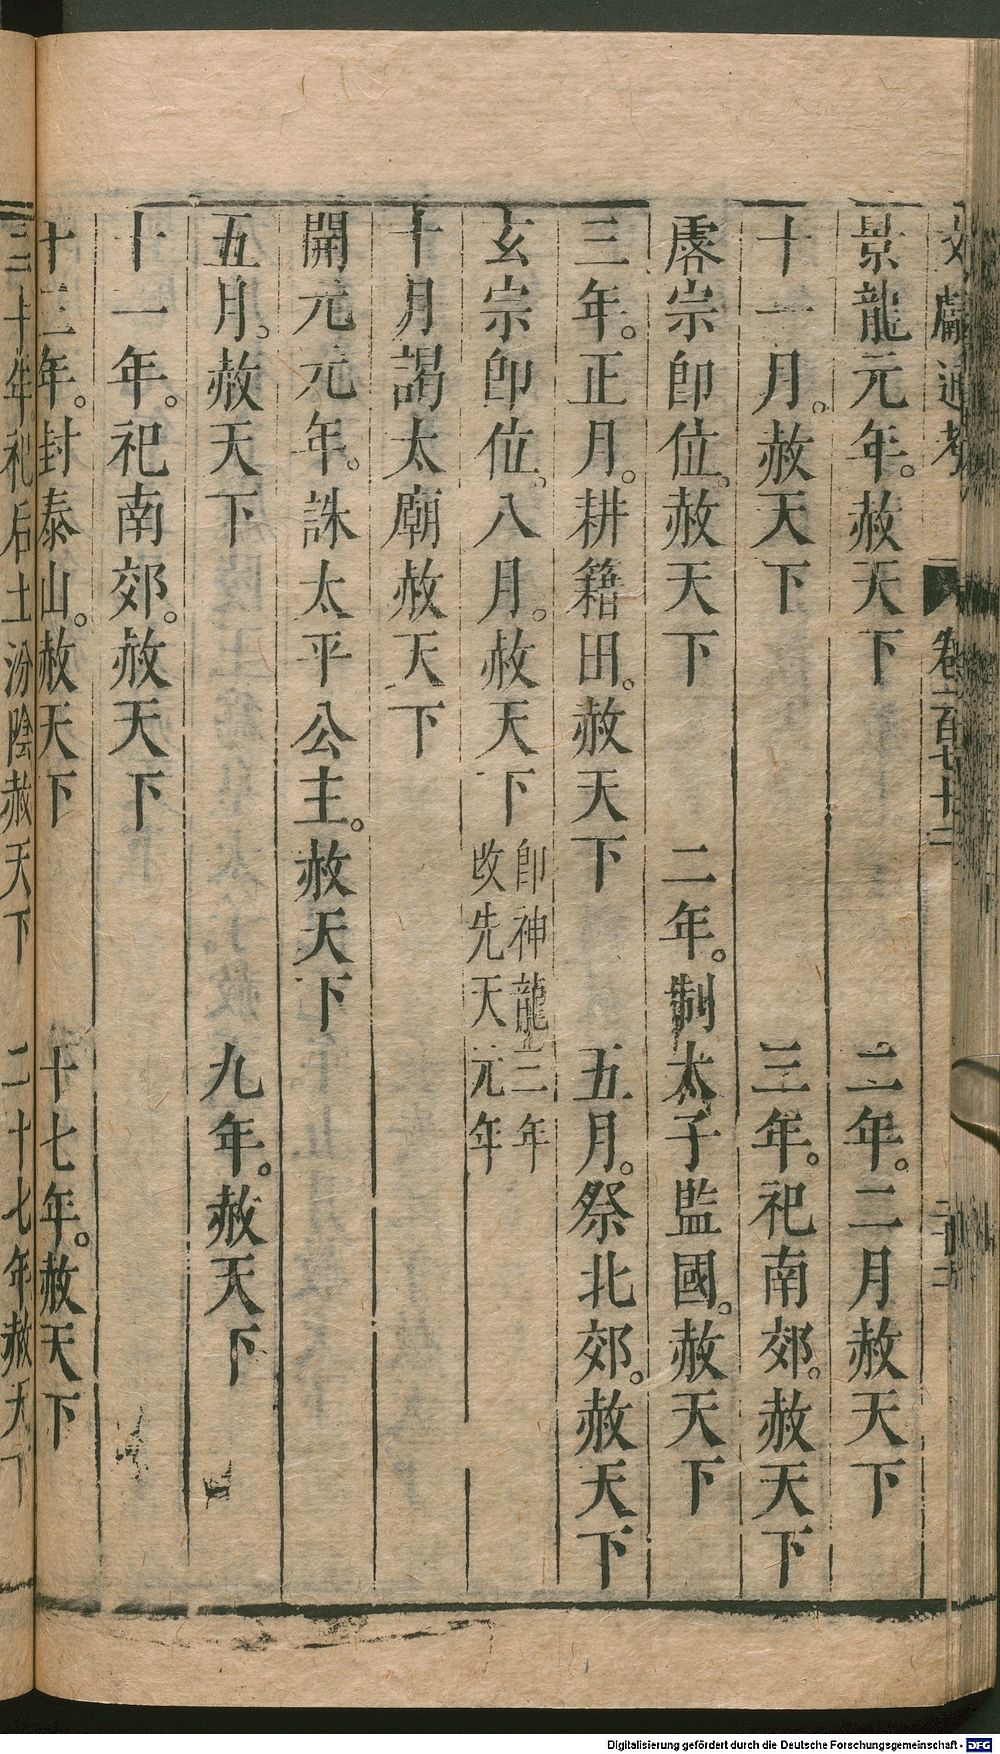 文獻通考　卷一百七十二
景龍元年。赦天下　二年。二月赦天下
十一月。赦天下　三年。祀南郊。赦天下
睿宗卽位。赦天下　二年。制太子監國。赦天下
三年。正月。耕籍田。赦天下　五月。祭北郊。赦天下
玄宗卽位。八月。赦天下 卽神龍三年改先天元年
十月謁太廟赦天下
開元元年。誅太平公主。赦天下
五月。赦天下　九年。赦天下
十一年。祀南郊。赦天下
十三年。封泰山。赦天下　十七年。赦天下
二十年祀后土汾陰赦天下　二十七年赦天下
Digitalisierung gefördert durch die Deutsche Forschungsgemeinschaft - DFG